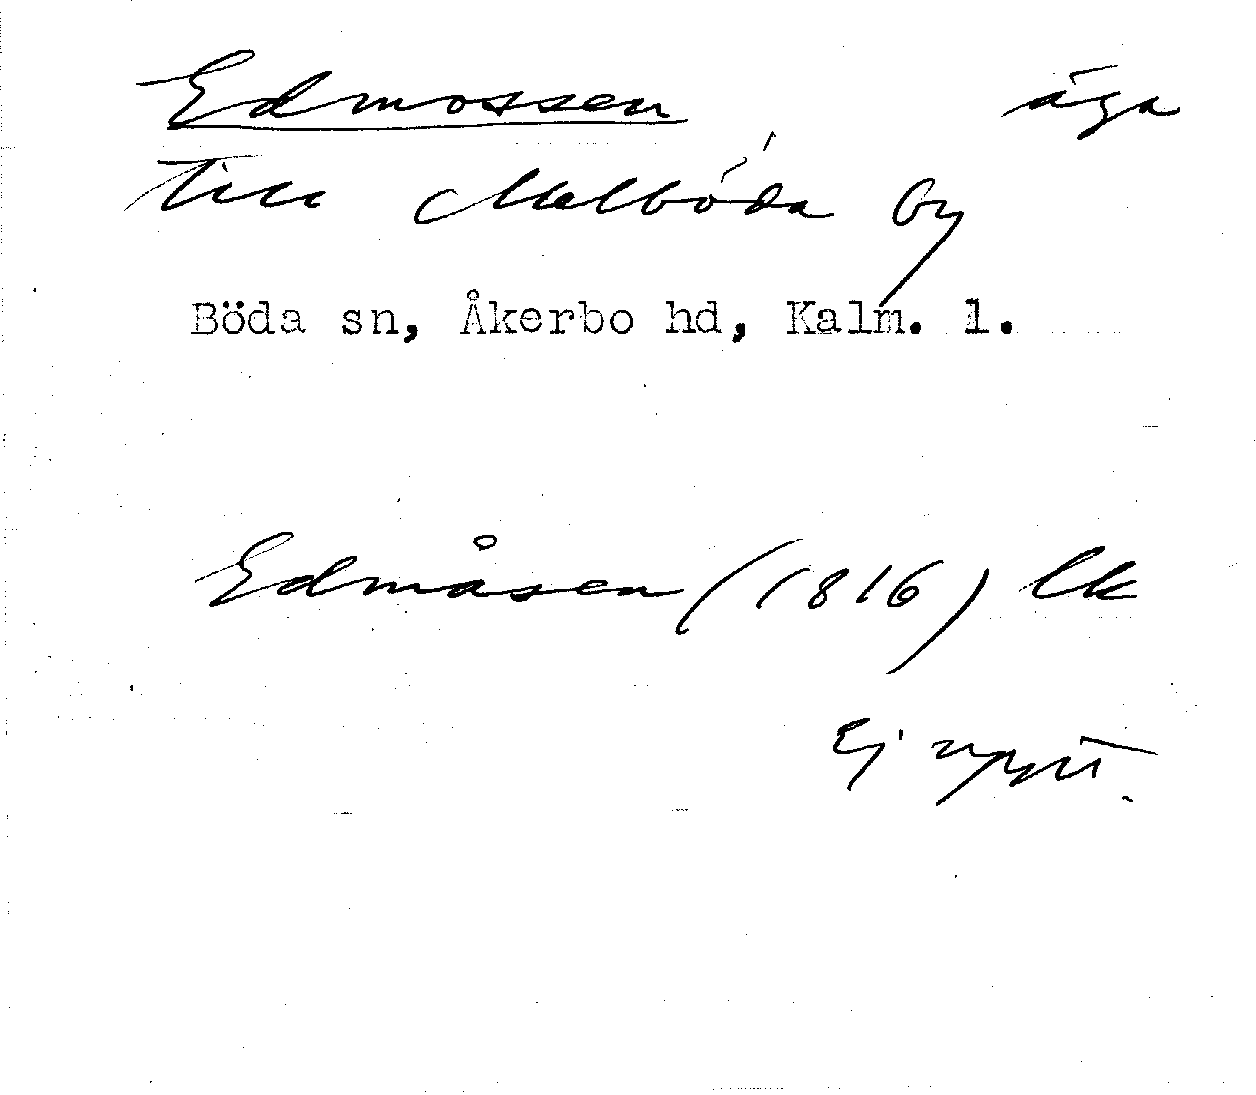 Edmossen äga
till Melböda by
Böda sn, Åkerbo hd, Kalm. l.
Edmåsen (1816) lk
Ej nytt.